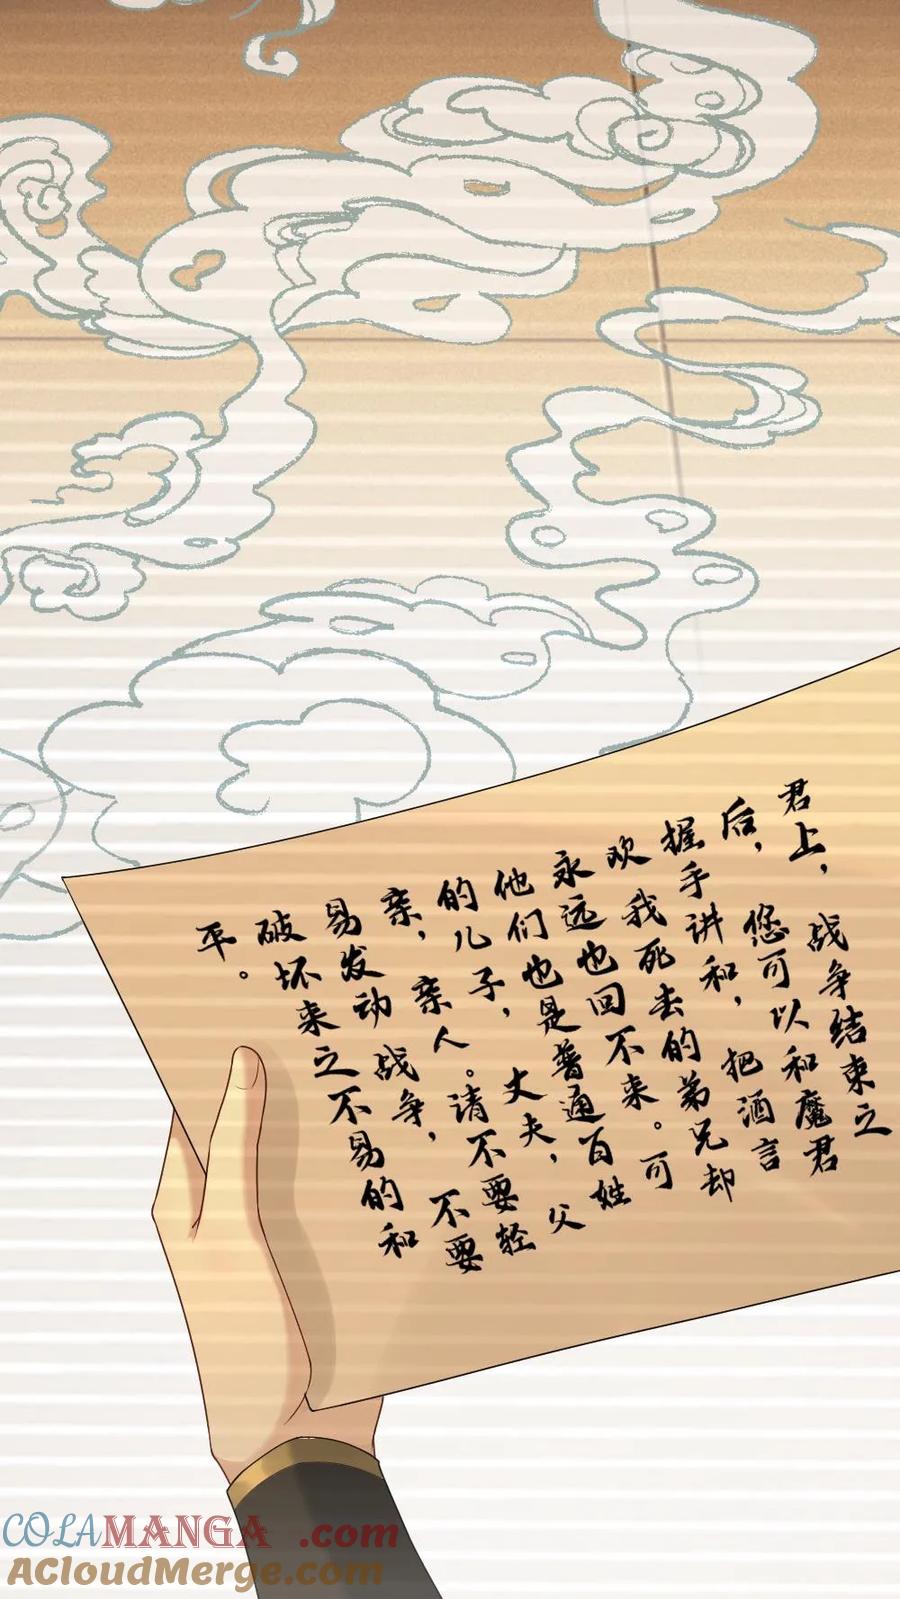 君上，战争结束之
后，您可以和魔君
握手讲和，把酒言
欢我死去的弟兄却
永远也回不来。可
他们也是普通百姓
的儿子，丈夫，父
亲，亲人。请不要轻
易发动战争，不要
破坏来之不易的和
平。
COLAMANGA.com
ACloudMerge.com